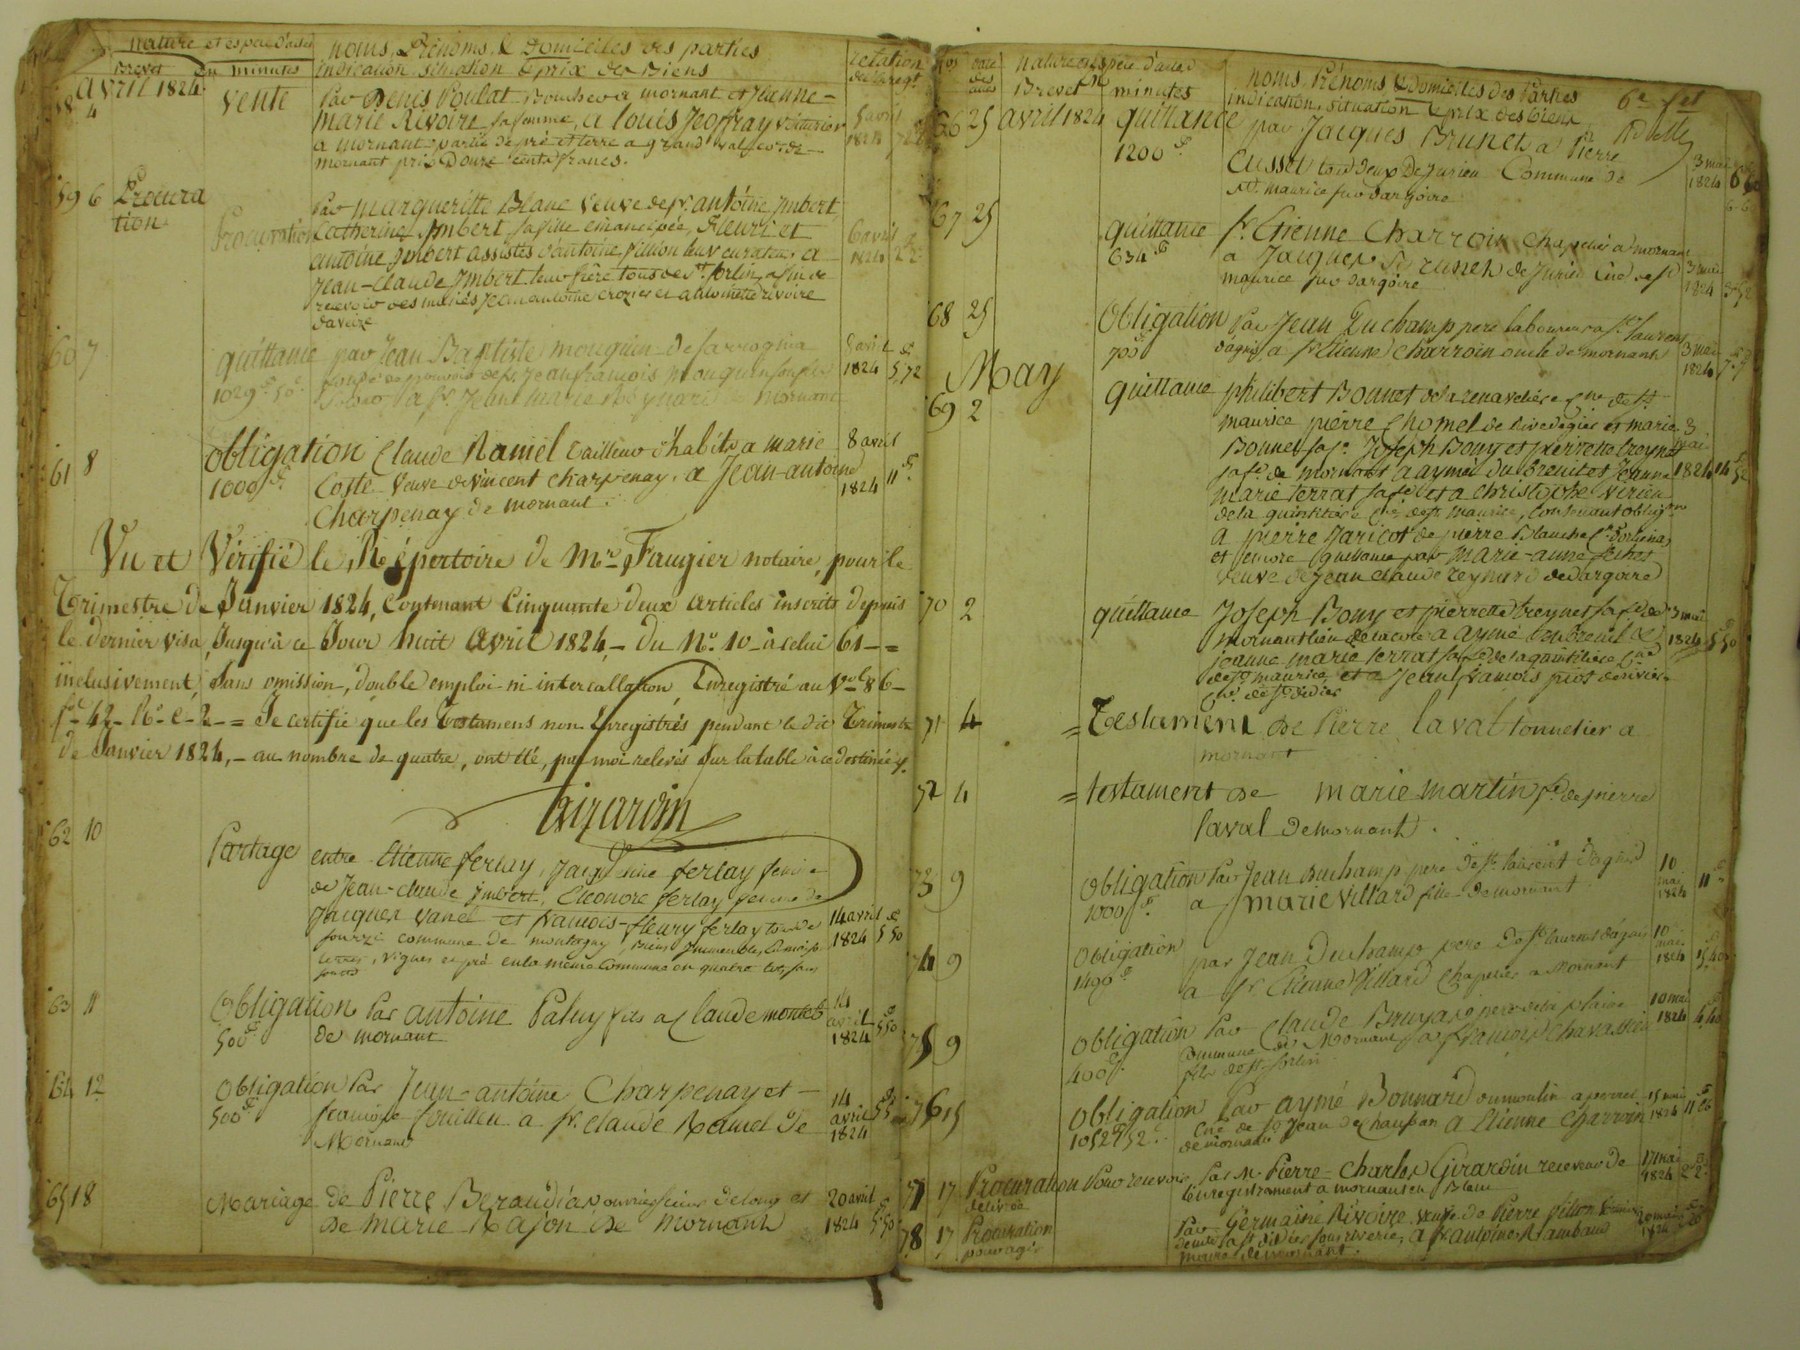 nature et espèce d'actes
noms, Prénoms, & Domiciles des parties
relation
Brevet
en minutes
indication, situation & prix des Biens
de l'enregt.
avril 1824
58 4 vente par Denis Poulat Boucher a mornant et jeanne-
marie Rivoire sa femme, a Louis Jeoffray voiturier 5 avril
a mornant partie de pré et terre a grand val sur de 1824
mornant prix Douze cents francs.
59 6 Procura
tion
Procuration
par margueritte Blanc veuve de sr. antoine Imbert,
Catherine Imbert sa fille émancipée, fleuri et 6 avril
antoine Imbert assistés d'antoine fillion leur curateur a 1824
Jean-Claude Imbert leur frère tous de st. sorlin, afin de
recevoir des mariés Jean antoine crozier et antoinette rivoire
60 7 quittance par Jean Baptiste mouguin 8 avril
1029 50 fondé de pouvoir de sr. Jean françois mouguin 1824 5,72
a sr. Jean marie mornant
61 8 obligation Claude Ramel tailleur d'habits a marie 8 avril
1000 Coste veuve de vincent charpenay, a Jean-antoine 1824 11
Charpenay de mornant.
Vu et Vérifié le Répertoire de Mr. Faugier notaire, pour le
Trimestre de Janvier 1824, Contenant Cinquante deux articles inscrits depuis
le dernier visa, Jusqu'à ce Jour huit avril 1824, - du No. 10 - à celui 61 - =
inclusivement, sans omission, double emploi ni intercallation Enregistré au Vol 86 -
fo. 42 - Ro. C - 2 - = Je certifie que les Testamens non Enregistrés pendant le dit Trimestre
de Janvier 1824, - au nombre de quatre, ont été, par moi relevés Sur la table à ce destinée.
Girardin
62 10 Partage entre Etienne ferlay, Jacqueline ferlay femme
de Jean-claude Imbert, Eleonore ferlay femme de
Jacques vanel et françois-fleury ferlay tous de 14 avril
commune de montagny, Biens Immeubles, 1824 5 50
terres, vignes et pré en la même Commune en quatre lots sans
63 11 Obligation Par antoine Paluy fils a Claude 14 avril
500 de mornant 1824 5 50
64 12 Obligation Par Jean-antoine Charpenay et - 14
500 françoise fouilleu a sr. claude Ramel de avril
Mornant 1824
65 18 Mariage de Pierre Beraud de loup et 20 avril
de marie de mornant 1824 5 50
Nos date des actes nature et espèce d'actes
noms, Prénoms & Domiciles des Parties 6e. fet
Brevet minutes indication, situation & prix des biens
66 25 avril 1824 quittance par Jacques Brunet a Pierre
1200 Cusset tous deux de jurieu Commune de 3 mai
st. maurice sur dargoire 1824
67 25 quittance sr. Etienne Charroin chapelier a mornant
634 a Jacques Brunet de Jurieu Cne. de st. 3 mai
maurice sur dargoire 1824
68 25 Obligation Par Jean Duchamp pere laboureur a st. laurent
700 d'agny a sr. Etienne Charroin oncle de mornant 3 mai
1824
May
69 2 quittance philibert Bonnet de la renardière Cne. de st.
maurice pierre Chomel de rivedegier et marie 3
Bonnet sa fe. Joseph Bouy et pierrette treynet mai
sa fe. de mornant a aymé du breuil et Jeanne 1824 14
marie terrat sa fe. et a christophe verieu
de la quintilière Cne. de st. maurice, Contenant oblig.on
a pierre Jaricot de pierre Blanche
et encore quittance par marie-anne
veuve de Jean claude reynard de dargoire
70 2 quittance Joseph Bouy et pierrette treynet sa fe. de 3 mai
mornant lieu de lacote a aymé du breuil & 1824 5 50
jeanne marie terrat sa fe. de la quintilière Cne.
de st. maurice et a Jean françois
Cne. de st. didier
71 4 = Testament de Pierre laval tonnelier a
mornant
72 4 = testament de marie martin fe. de pierre
laval de mornant.
73 9 Obligation Par Jean Duchamp pere de st. laurent d'agny 10 mai
1000 a marie Villard fille de mornant 1824 11
74 9 Obligation par Jean Duchamp pere de st. laurent d'agny 10 mai
1400 a sr. Etienne Villard Chapelier a Mornant 1824 15,40
75 9 obligation Par Claude Bruyas plaine 10 mai
400 commune de Mornant a françois Chavassieu 1824 4,40
fils de st. sorlin
76 15 Obligation Par aymé Bonnard du moulin a 15 mai
1052 52 Cne. de st. Jean de chaussan a Etienne Charroin 1824 11
de mornant
77 17 Procuration Pour recevoir Par Mr. Pierre-Charles Girardin receveur de 17 mai
delivrée L'enregistrement a mornant en Blanc 1824
78 17 Procuration Par Germaine Rivoire veuve de Pierre fillion
st. didier sous riverie, a sr. antoine Rambaud 1824
maire de mornant.